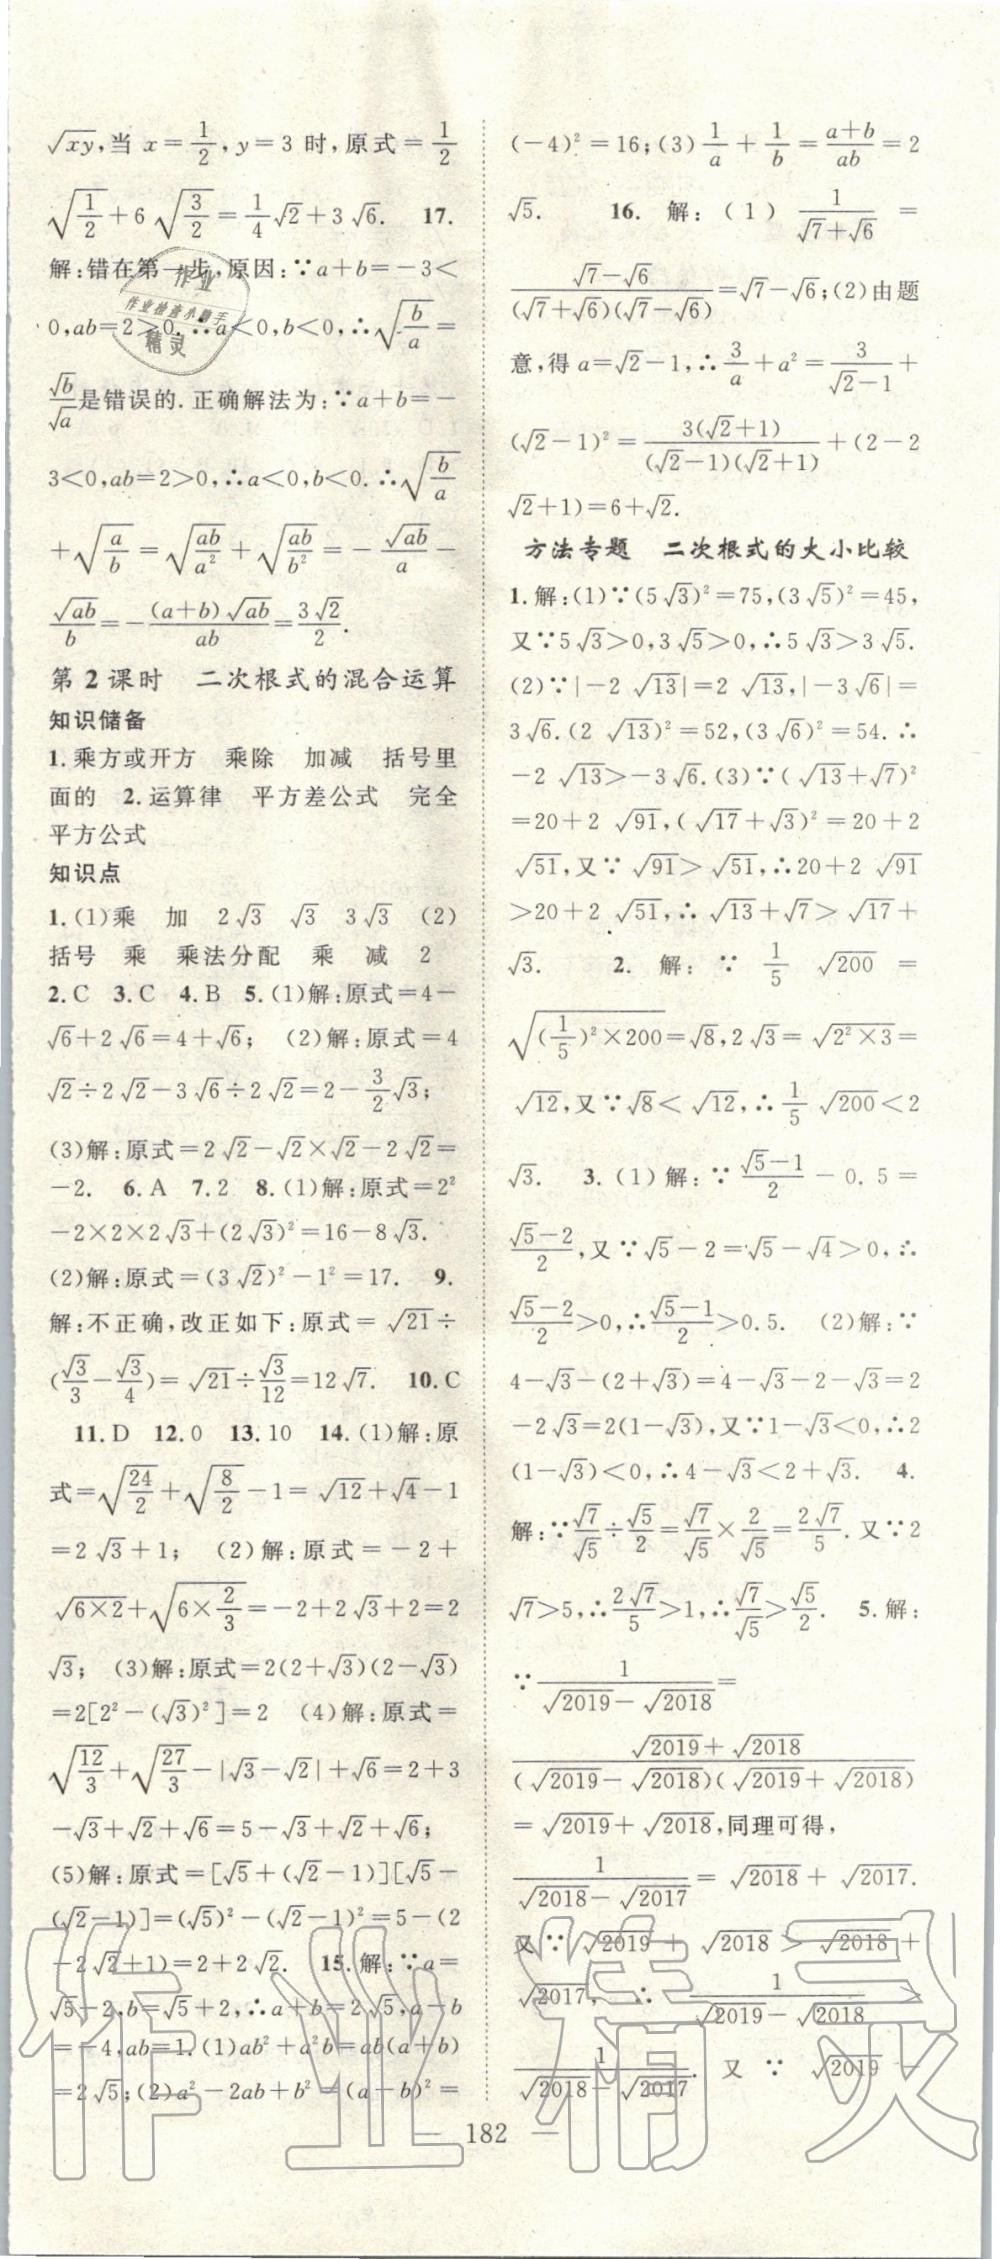 √xy,当 x=1/2,y=3 时,原式=1/2
√(1/2)+6√(3/2)=1/4√2+3√6. 17.
解:错在第一步,原因:∵a+b=-3<
0,ab=2>0,∴a<0,b<0,∴√(b/a)=
√b/√a是错误的.正确解法为:∵a+b=-
3<0,ab=2>0,∴a<0,b<0.∴√(b/a)
+√(a/b)=√(ab/a²)+√(ab/b²)=-√ab/a-
√ab/b=-(a+b)√ab/ab=3√2/2.
第2课时 二次根式的混合运算
知识储备
1.乘方或开方 乘除 加减 括号里
面的 2.运算律 平方差公式 完全
平方公式
知识点
1.(1)乘 加 2√3 √3 3√3 (2)
括号 乘 乘法分配 乘 减 2
2.C 3.C 4.B 5.(1)解:原式=4-
√6+2√6=4+√6; (2)解:原式=4
√2÷2√2-3√6÷2√2=2-3/2√3;
(3)解:原式=2√2-√2×√2-2√2=
-2. 6.A 7.2 8.(1)解:原式=2²
-2×2×2√3+(2√3)²=16-8√3.
(2)解:原式=(3√2)²-1²=17. 9.
解:不正确,改正如下:原式=√21÷
(√3/3-√3/4)=√21÷√3/12=12√7. 10.C
11.D 12.0 13.10 14.(1)解:原
式=√(24/2)+√(8/2)-1=√12+√4-1
=2√3+1; (2)解:原式=-2+
√(6×2)+√(6×2/3)=-2+2√3+2=2
√3; (3)解:原式=2(2+√3)(2-√3)
=2[2²-(√3)²]=2 (4)解:原式=
√(12/3)+√(27/3)-|√3-√2|+√6=2+3
-√3+√2+√6=5-√3+√2+√6;
(5)解:原式=[√5+(√2-1)][√5-
(√2-1)]=(√5)²-(√2-1)²=5-(2
-2√2+1)=2+2√2. 15.解:∵a=
√5-2,b=√5+2,∴a+b=2√5,a-b
=-4,ab=1.(1)ab²+a²b=ab(a+b)
=2√5;(2)a²-2ab+b²=(a-b)²=
(-4)²=16;(3)1/a+1/b=(a+b)/ab=2
√5. 16. 解:(1) 1/(√7+√6) =
(√7-√6)/((√7+√6)(√7-√6))=√7-√6;(2)由题
意,得a=√2-1,∴3/a+a²=3/(√2-1)+
(√2-1)²=3(√2+1)/((√2-1)(√2+1))+(2-2
√2+1)=6+√2.
方法专题 二次根式的大小比较
1.解:(1)∵(5√3)²=75,(3√5)²=45,
又∵5√3>0,3√5>0,∴5√3>3√5.
(2)∵|-2√13|=2√13,|-3√6|=
3√6.(2√13)²=52,(3√6)²=54.∴
-2√13>-3√6.(3)∵(√13+√7)²
=20+2√91,(√17+√3)²=20+2
√51,又∵√91>√51,∴20+2√91
>20+2√51,∴√13+√7>√17+
√3. 2. 解:∵ 1/5 √200 =
√((1/5)²×200)=√8,2√3=√(2²×3)=
√12,又∵√8<√12,∴1/5√200<2
√3. 3.(1)解:∵(√5-1)/2-0.5=
(√5-2)/2,又∵√5-2=√5-√4>0,∴
(√5-2)/2>0,∴(√5-1)/2>0.5. (2)解:∵
4-√3-(2+√3)=4-√3-2-√3=2
-2√3=2(1-√3),又∵1-√3<0,∴2
(1-√3)<0,∴4-√3<2+√3. 4.
解:∵√7/√5÷√5/2=√7/√5×2/√5=2√7/5.又∵2
√7>5,∴2√7/5>1,∴√7/√5>√5/2. 5.解:
∵1/(√2019-√2018)=
(√2019+√2018)/((√2019-√2018)(√2019+√2018))
=√2019+√2018,同理可得,
1/(√2018-√2017)=√2018+√2017.
又∵√2019+√2018>√2018+
√2017, ∴ 1/(√2019-√2018) >
1/(√2018-√2017). 又 ∵ √2019 -
182
作业
作业检查小助手
精灵
作业精灵